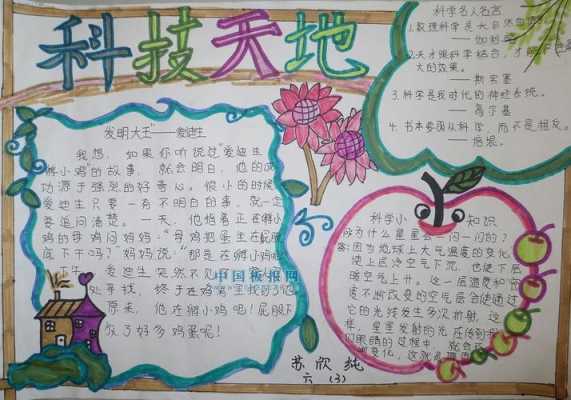 科技天地
发明大王"——爱迪生
我想，如果你听说过"爱迪生
孵小鸡"的故事，就会明白，他的成
功源于强烈的好奇心。很小的时候
爱迪生只要一有不明白的事，就一定
要追问清楚。一天，他指着正在孵小
鸡的母鸡问妈妈："母鸡把蛋坐在屁股
底下干吗？"妈妈说："那是在孵小鸡呢
午，爱迪生突然不见
处寻找，终于在鸡窝里找到了他
原来，他在孵小鸡呢！屁股下
放了好多鸡蛋呢！
科学名人名言
1.数理科学是大自然的
——伽利略
2.天才跟科学结合，才能
大的效果。
——斯宾塞
3.科学是我时代的神经系统。
——高尔基
4.书本要顺从科学，而不是相反。
——培根。
科学小知识
为什么星星会一闪一闪的？
答:因为地球上大气温度的变化
使上层冷空气下沉，也使下层
暖空气上升。这一层温度和密
度不断改变的空气层会使通过
它的光线发生多次折射，这
样，星星发射的光在传到我
们眼睛的过程中，就会
变化，这就
中国板报网
苏欣纯
六（3）